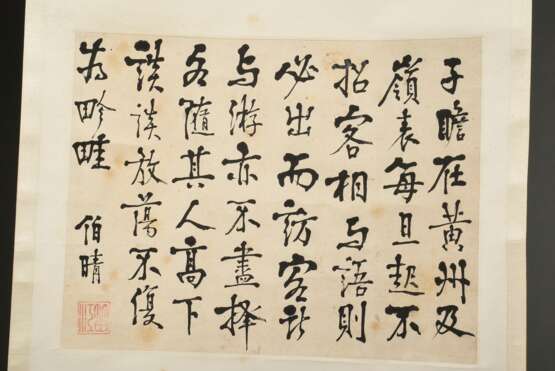 子瞻在黃州及
嶺表每旦起不
招客相与語則
必出而訪客所
与游亦不盡擇
各隨其人高下
談諧放蕩不復
為畛畦
伯晴